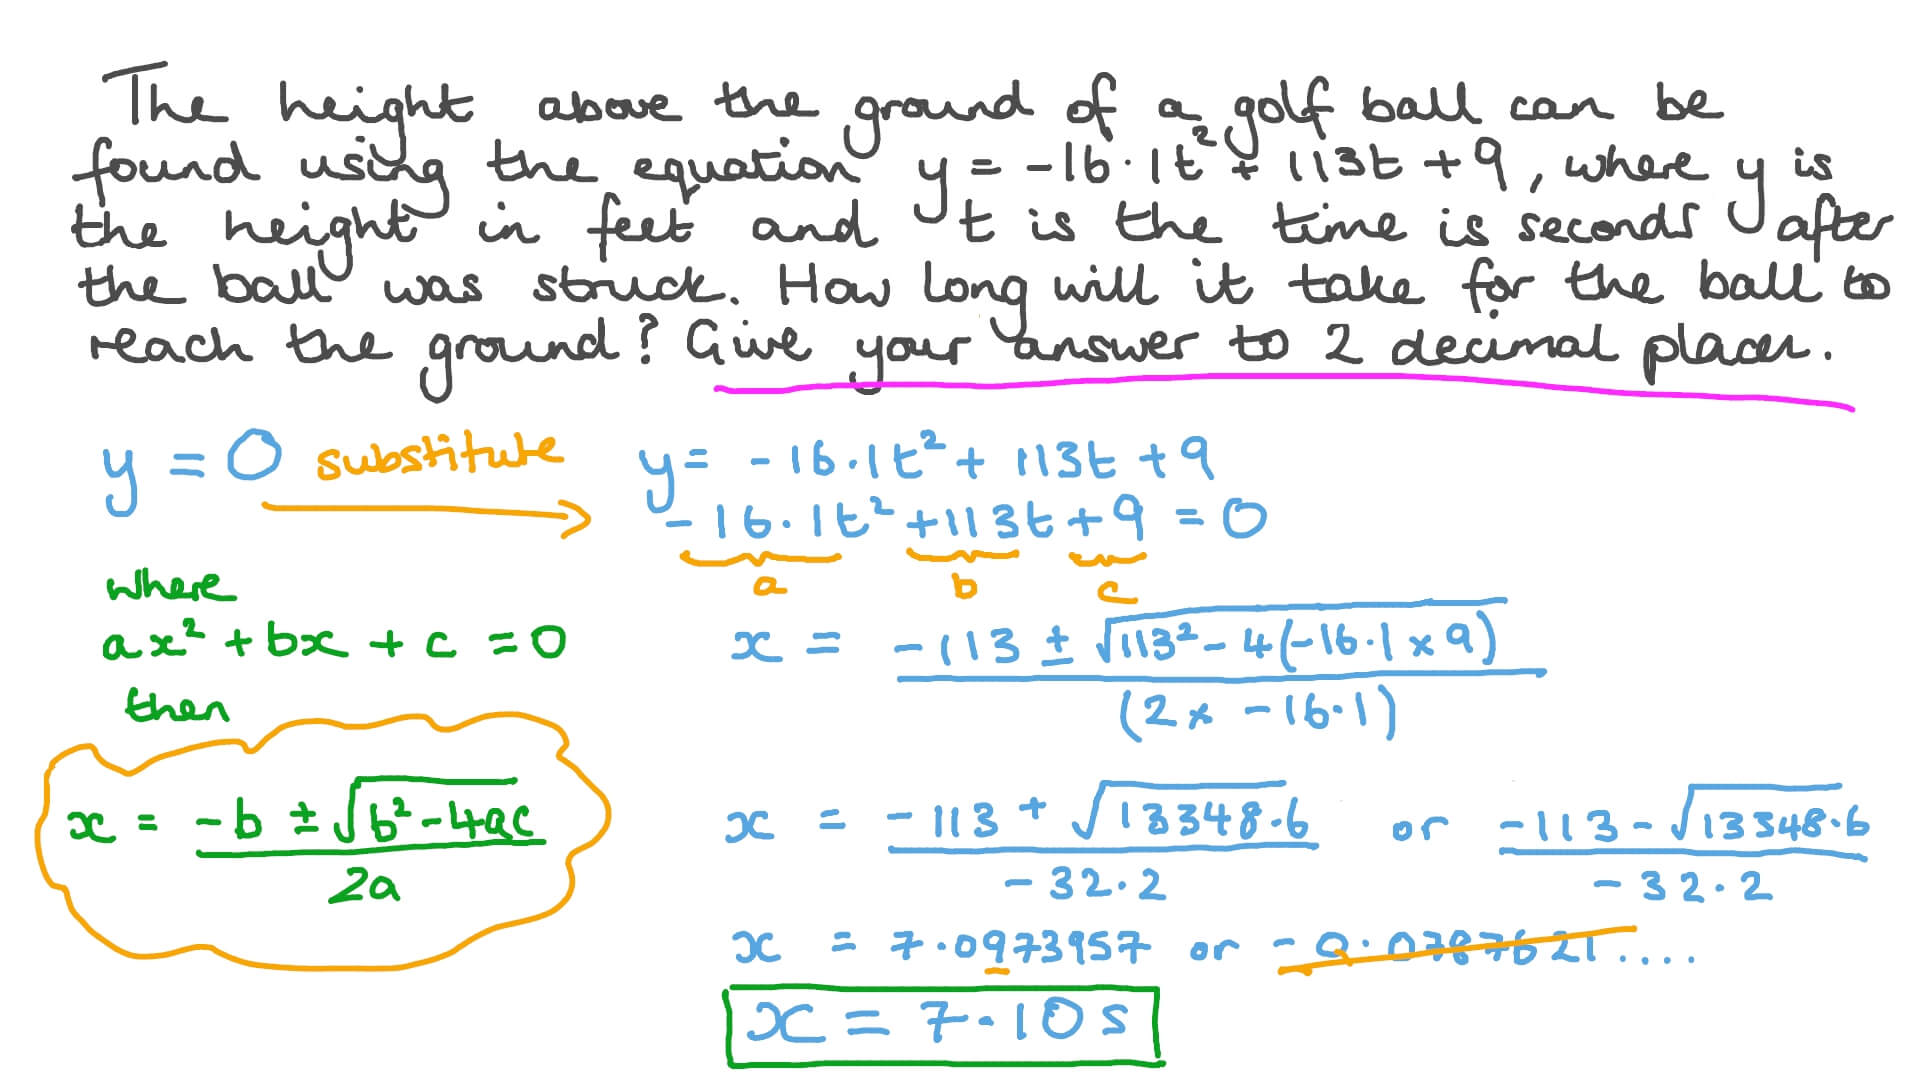 The height above the ground of a golf ball can be
found using the equation y = -16·1t² + 113t + 9, where y is
the height in feet and t is the time is seconds after
the ball was struck. How long will it take for the ball to
reach the ground? Give your answer to 2 decimal places.
y = 0 substitute
y = -16·1t² + 113t + 9
-16·1t² + 113t + 9 = 0
a b c
where
ax² + bx + c = 0
then
x = -b ± √b² - 4ac
2a
x = -113 ± √113² - 4(-16·1 × 9)
(2 × -16·1)
x = -113 + √13348·6 or -113 - √13348·6
-32·2 -32·2
x = 7·0973957 or -0·0787621....
x = 7·10 s